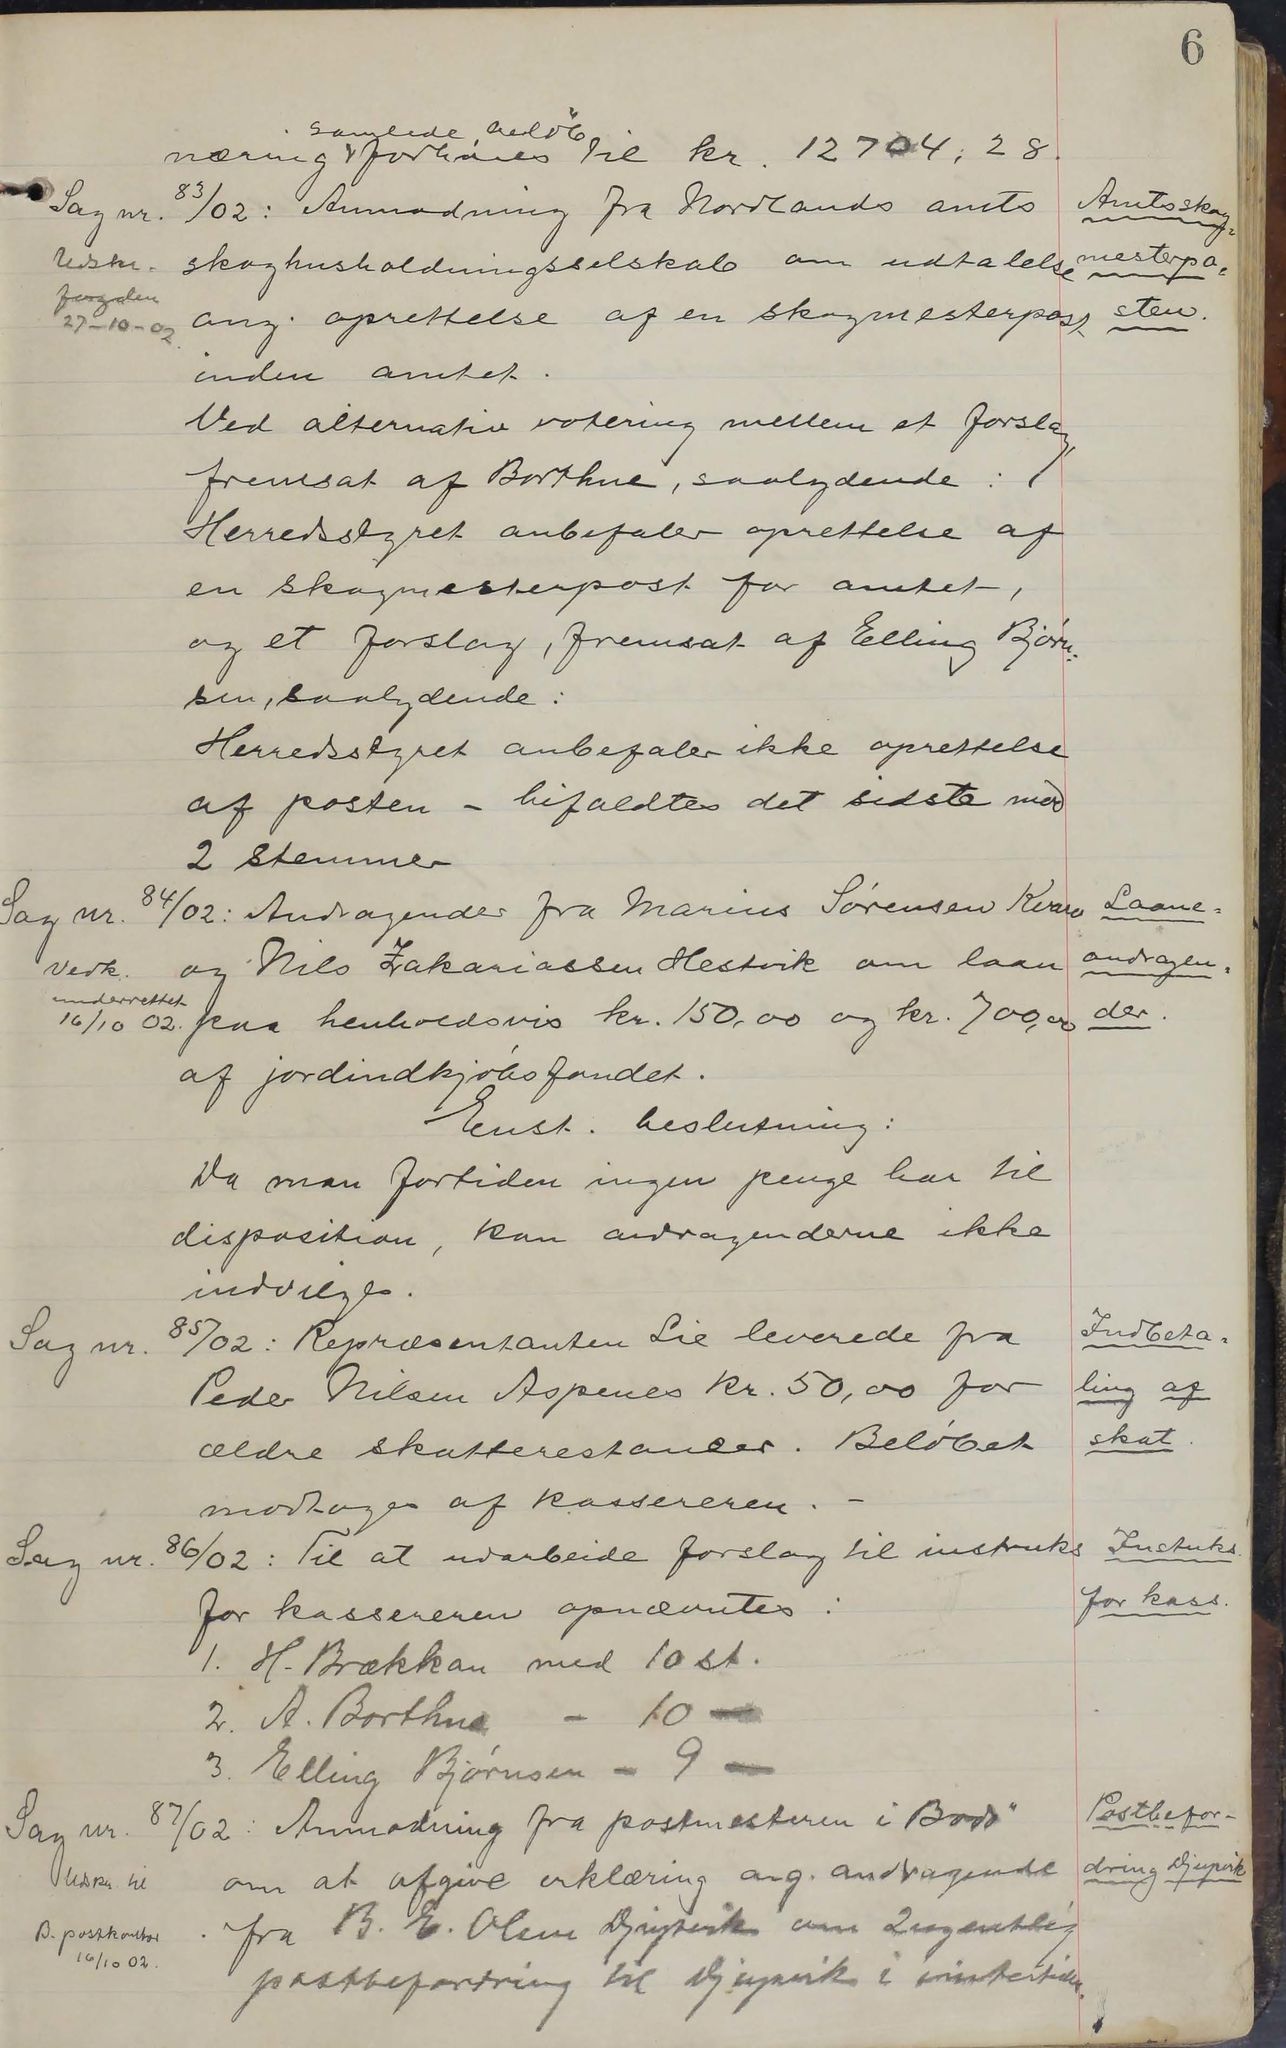 6
samlede beløb
næring & forhøies til kr. 12704,28.
Sag nr. 83/02: Anmodning fra Nordlands amts
skoghusholdningsselskab om udtalelse
ang. oprettelse af en skogmesterpost
inden amtet.
Amtsskog-
mesterpo-
sten.
Udskr.
fogden
27-10-02.
Ved alternativ votering mellem et forslag,
fremsat af Borthne, saalydende:
Herredsstyret anbefaler oprettelse af
en skogmesterpost for amtet,
og et forslag, fremsat af Elling Bjørn-
sen, saalydende:
Herredsstyret anbefaler ikke oprettelse
af posten - bifaldtes det sidste mod
2 stemmer
Sag nr. 84/02: Andragender fra Marius Sørensen
og Nils Zakariassen Hestvik om laan
paa henholdsvis kr. 150,00 og kr. 700,00
af jordindkjøbsfondet.
Laane-
andragen-
der.
Vedk.
underrettet
16/10 02.
Enst. beslutning:
Da man fortiden ingen penge har til
disposition, kan andragenderne ikke
indvilges.
Sag nr. 85/02: Repræsentanten Lie leverede fra
Peder Nilsen Aspenes kr. 50,00 for
ældre skatterestancer. Beløbet
modtoges af kassereren. -
Indbeta-
ling af
skat.
Sag nr. 86/02: Til at udarbeide forslag til instruks
for kassereren opnævntes:
Instuks
for kass.
1. H. Brækkan med 10 st.
2. A. Borthne - 10 -
3. Elling Bjørnsen - 9 -
Sag nr. 87/02: Anmodning fra postmesteren i Bodø
om at afgive erklæring ang. andragende
fra B. E. Olsen Djupvik om 2 ugentlig
postbefordring til Djupvik i vintertiden.
Postbefor-
dring Djupvik
Udskr. til
B. postkontor
16/10 02.